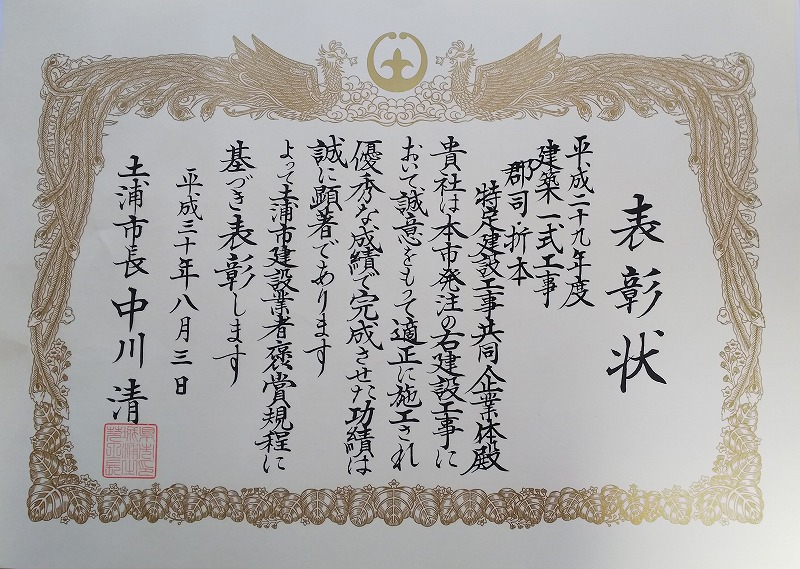 表彰状
平成二十九年度
建築一式工事
郡司・折本
特定建設工事共同企業体殿
貴社は本市発注の右建設工事に
おいて誠意をもって適正に施工され
優秀な成績で完成させた功績は
誠に顕著であります
よって土浦市建設業者褒賞規程に
基づき表彰します
平成三十年八月三日
土浦市長 中川清